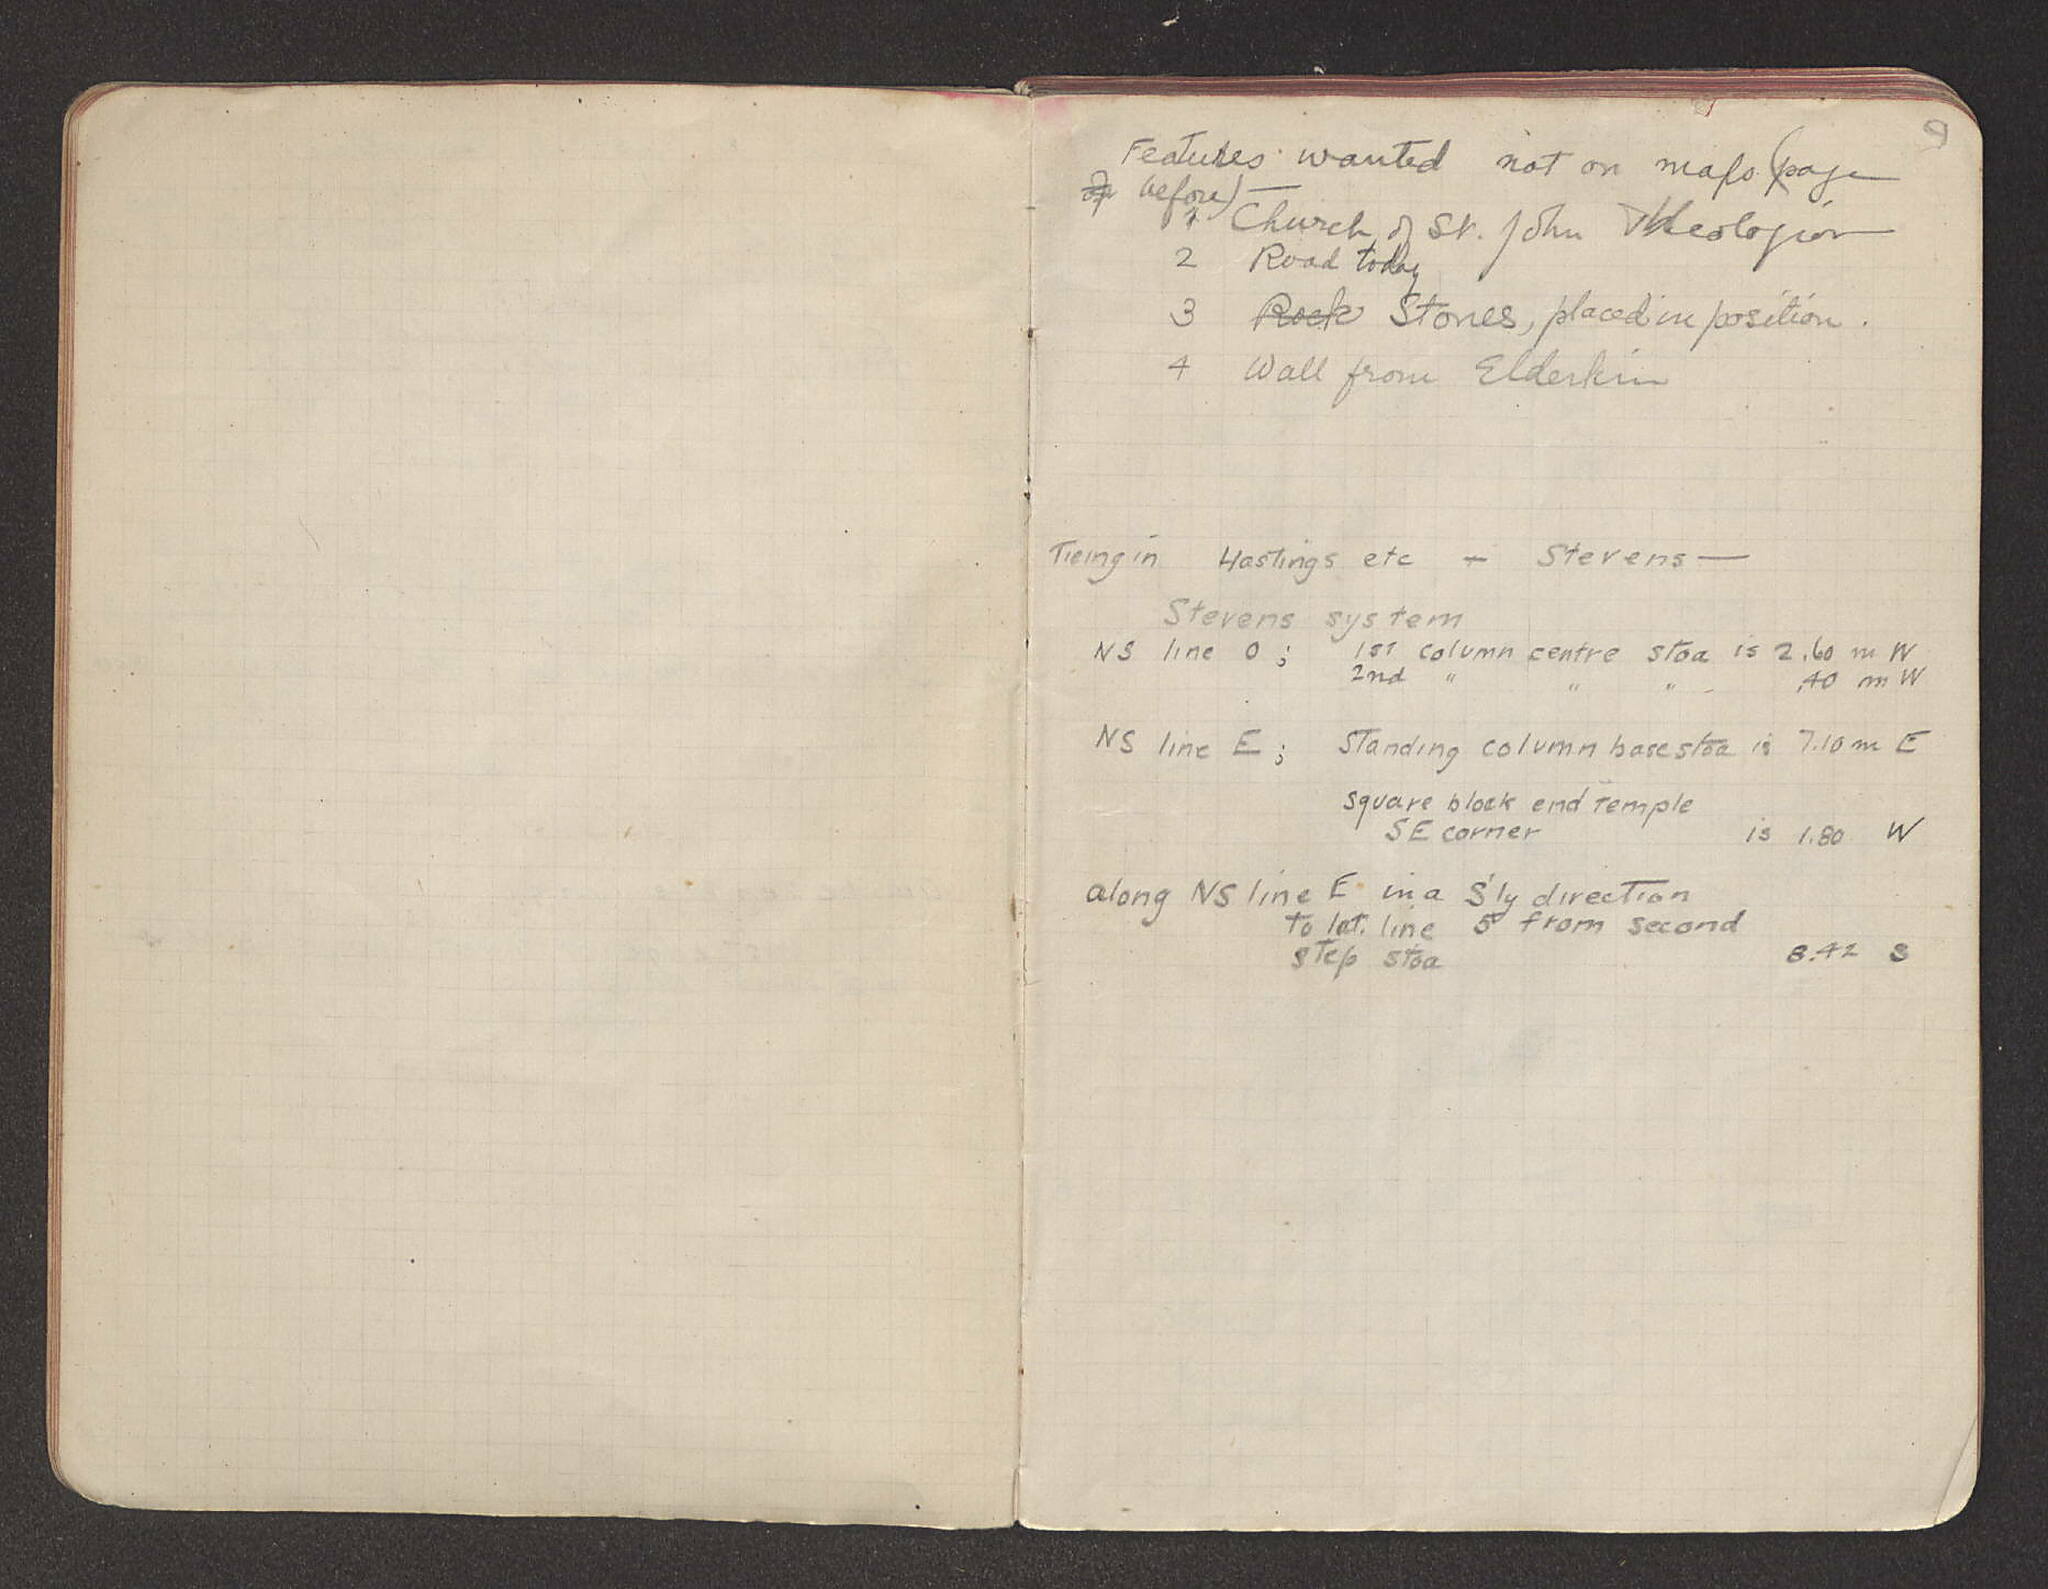 9
Features wanted not on maps (page
before) —
1 Church of St. John Theologion
2 Road today
3 Rock Stones, placed in position.
4 Wall from Elderkin
Tieing in Hastings etc — Stevens —
Stevens system
NS line 0; 1st column centre stoa is 2.60 m W
2nd " " " .40 m W
NS line E; Standing column base stoa is 7.10 m E
square block end temple
SE corner is 1.80 W
along NS line E in a S'ly direction
to lat. line 5 from second
step stoa 8.42 S